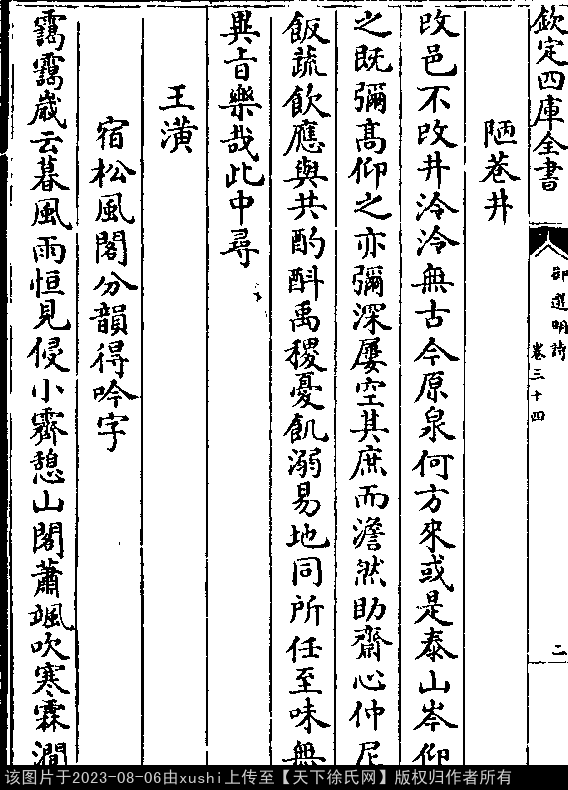 欽定四庫全書
御選明詩
卷三十四
二
陋巷井
改邑不改井泠泠無古今原泉何方來或是泰山岑仰
之既彌高仰之亦彌深屢空其庶而澹然助齋心仲尼
飯蔬飲應與共酌斟禹稷憂飢溺易地同所任至味無
異旨樂哉此中尋
王潢
宿松風閣分韻得吟字
靄靄歲云暮風雨恒見侵小霽憩山閣蕭颯吹寒霖澗
该图片于2023-08-06由xushi上传至【天下徐氏网】版权归作者所有